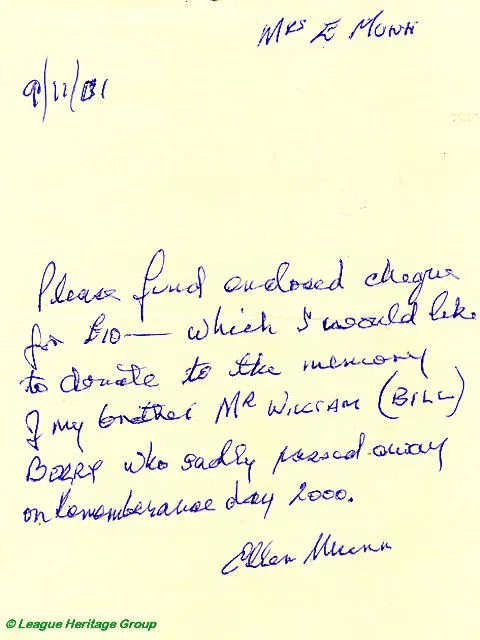 Mrs E Munn
9/11/01
Please find enclosed cheque
for £10— which I would like
to donate to the memory
of my brother MR WILLIAM (BILL)
BERRY who sadly passed away
on Rememberance day 2000.
Ellen Munn
© League Heritage Group